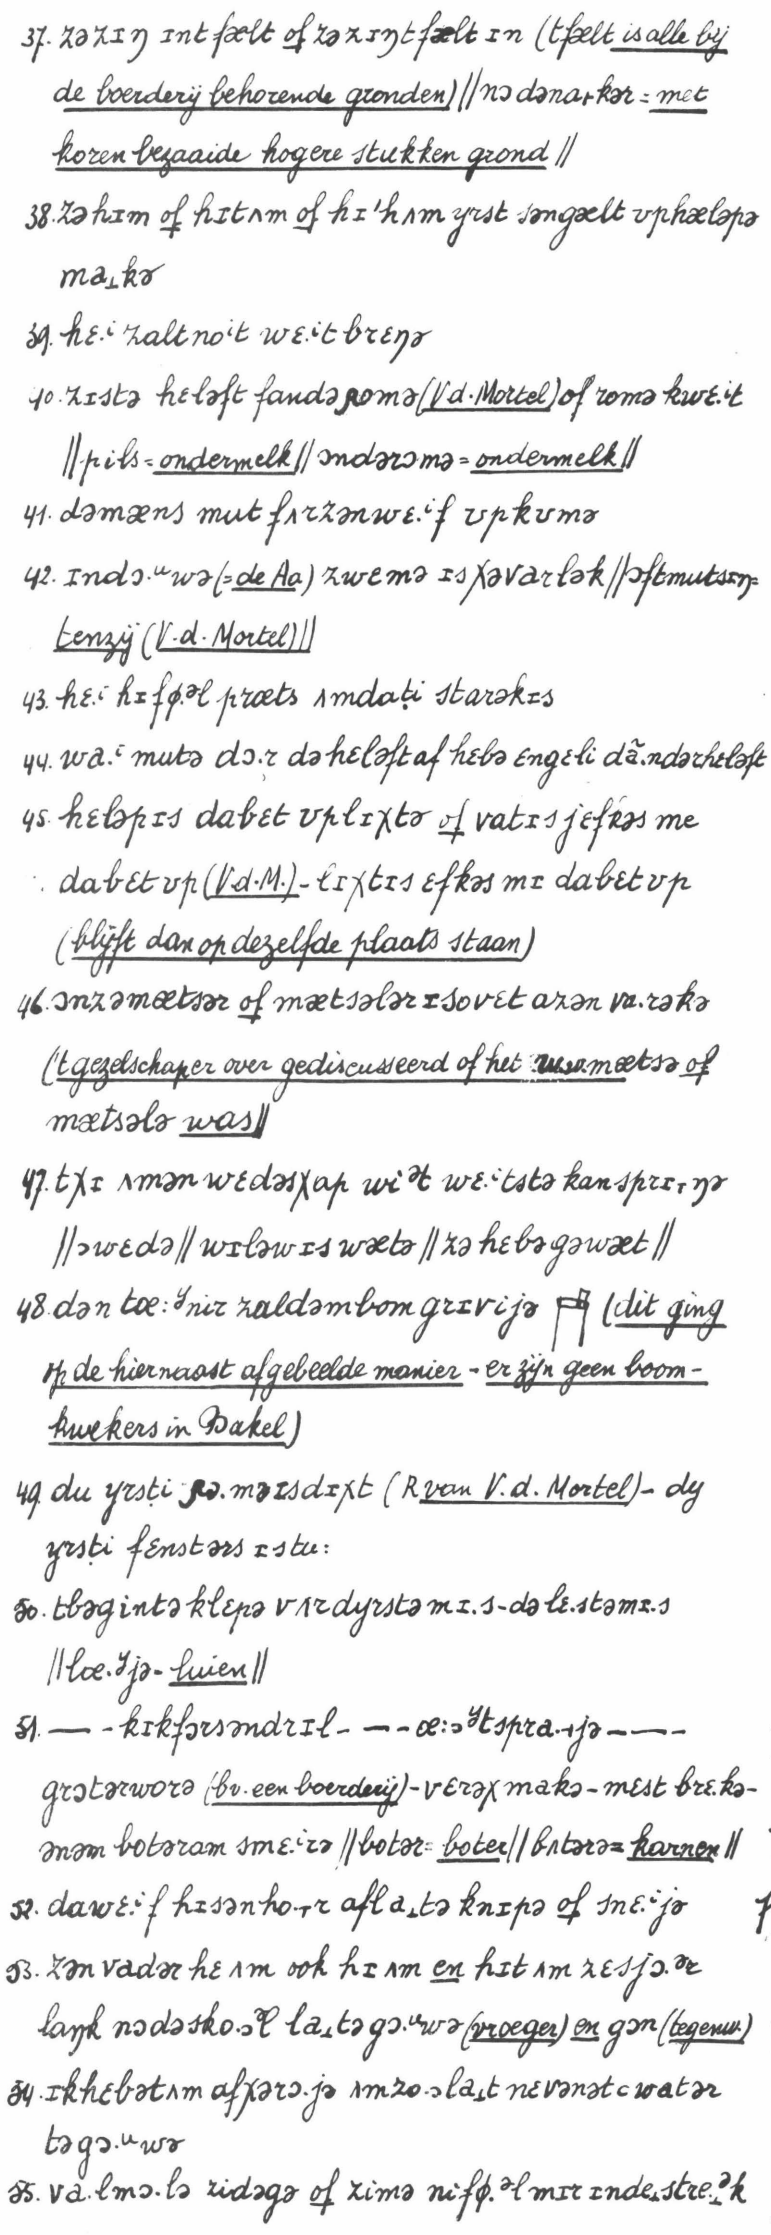 37. zəzɪŋ ɪnt fælt of zəzɪŋt fælt ɪn (tfælt is alle bij
de boerderij behorende gronden) // nə dəna˔kər = met
koren bezaaide hogere stukken grond //
38. zə hɪm of hɪtʌm of hɪ'hʌm yrst səngælt ʊphæləpə
ma˔kə
39. hɛ.ⁱ zaltnoⁱt wɛ.ⁱtbrɛŋə
40. zɪstə hɛləft fandə romə (V.d. Mortel) of romə kwɛ.ⁱt
// pils = ondermelk // ɔndərɔmə = ondermelk //
41. dəmæns mut fʌrzənwɛ.ⁱf ʊpkʊmə
42. ɪndɔ.ᵘwə (= de Aa) zwɛmə ɪsχəvarlək // əftmutsɪŋ =
tenzij (V.d. Mortel) //
43. hɛ.ⁱ hɪfø.ᵊl præts ʌmdaṭi starəkɪs
44. wa.ⁱ mutə dɔ.r dəhɛləftaf hɛbə ɛngɛli dã.ndərhɛləft
45. hɛləpɪs dabɛt ʊplɪχtə of vatɪs jɛfkəs me
dabɛt ʊp (V.d.M.) - lɪχtɪs ɛfkəs mɪ dabɛt ʊp
(blijft dan op dezelfde plaats staan)
46. ɔnzəmætsər of mætsələr ɪsovɛt azən va.rəkə
('t gezelschap er over gediscusseerd of het mætsə of
mætsələ was //
47. tχɪ ʌmən wɛdəsχap wiᵊt wɛ.ⁱtstə kan sprɪ˔ŋə
// ɔwɛdə // wɪləwɪs wætə // zə hɛbə gəwæt //
48. dən tœ:ʸnir zaldəmbom grɪvijə (dit ging
op de hiernaast afgebeelde manier - er zijn geen boom-
kwekers in Bakel)
49. du yrsṭi rə.məɪsdɪχt (R van V.d. Mortel) - dy
yrsṭi fɛnstərs ɪstu:
50. tbəgintə klɛpə vʌrdyrstəmɪ.s - dəlɛ.stəmɪ.s
// lœ.ʸjə - luien //
51. — - kɪkfɔrsəndrɪl - — - œ:ɔʸtspra.˔jə — - —
grɔtərworə (bv. een boerderij) - vɛrəχ makə - mɛst brɛ.kə -
ənəm botəram smɛ.ⁱrə // botər = boter // bʌtərə = karnen //
52. dawɛ.ⁱf hɪsənho.˔r afla˔tə knɪpə of snɛ.ⁱjə
53. zən vadər hɛ ʌm ook hɪ ʌm en hɪt ʌm zɛsjɔ.ᵊr
laŋk nɔdəsko.ɔl la˔tə gɔ.ᵘwə (vroeger) en gɔn (tegenw.)
54. ɪkhɛbətʌm afχərɔ.jə ʌmzo.ɔla˔t nɛvənət watər
təgɔ.ᵘwə
55. va.lmɔ.lə zidəgə of zimə nifø.ᵊlmɪr ɪnde˔stre.ᵊk